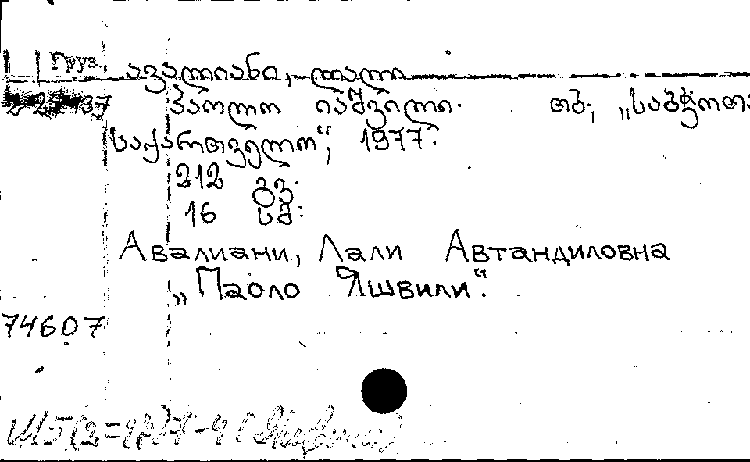 Груз.
ავალიანი, ლალი
პაოლო იაშვილი. თბ., „საბჭოთა
საქართველო“, 1977.
212 გვ.
16 სმ.
Авалиани, Лали Автандиловна
„Паоло Яшвили“.
74607